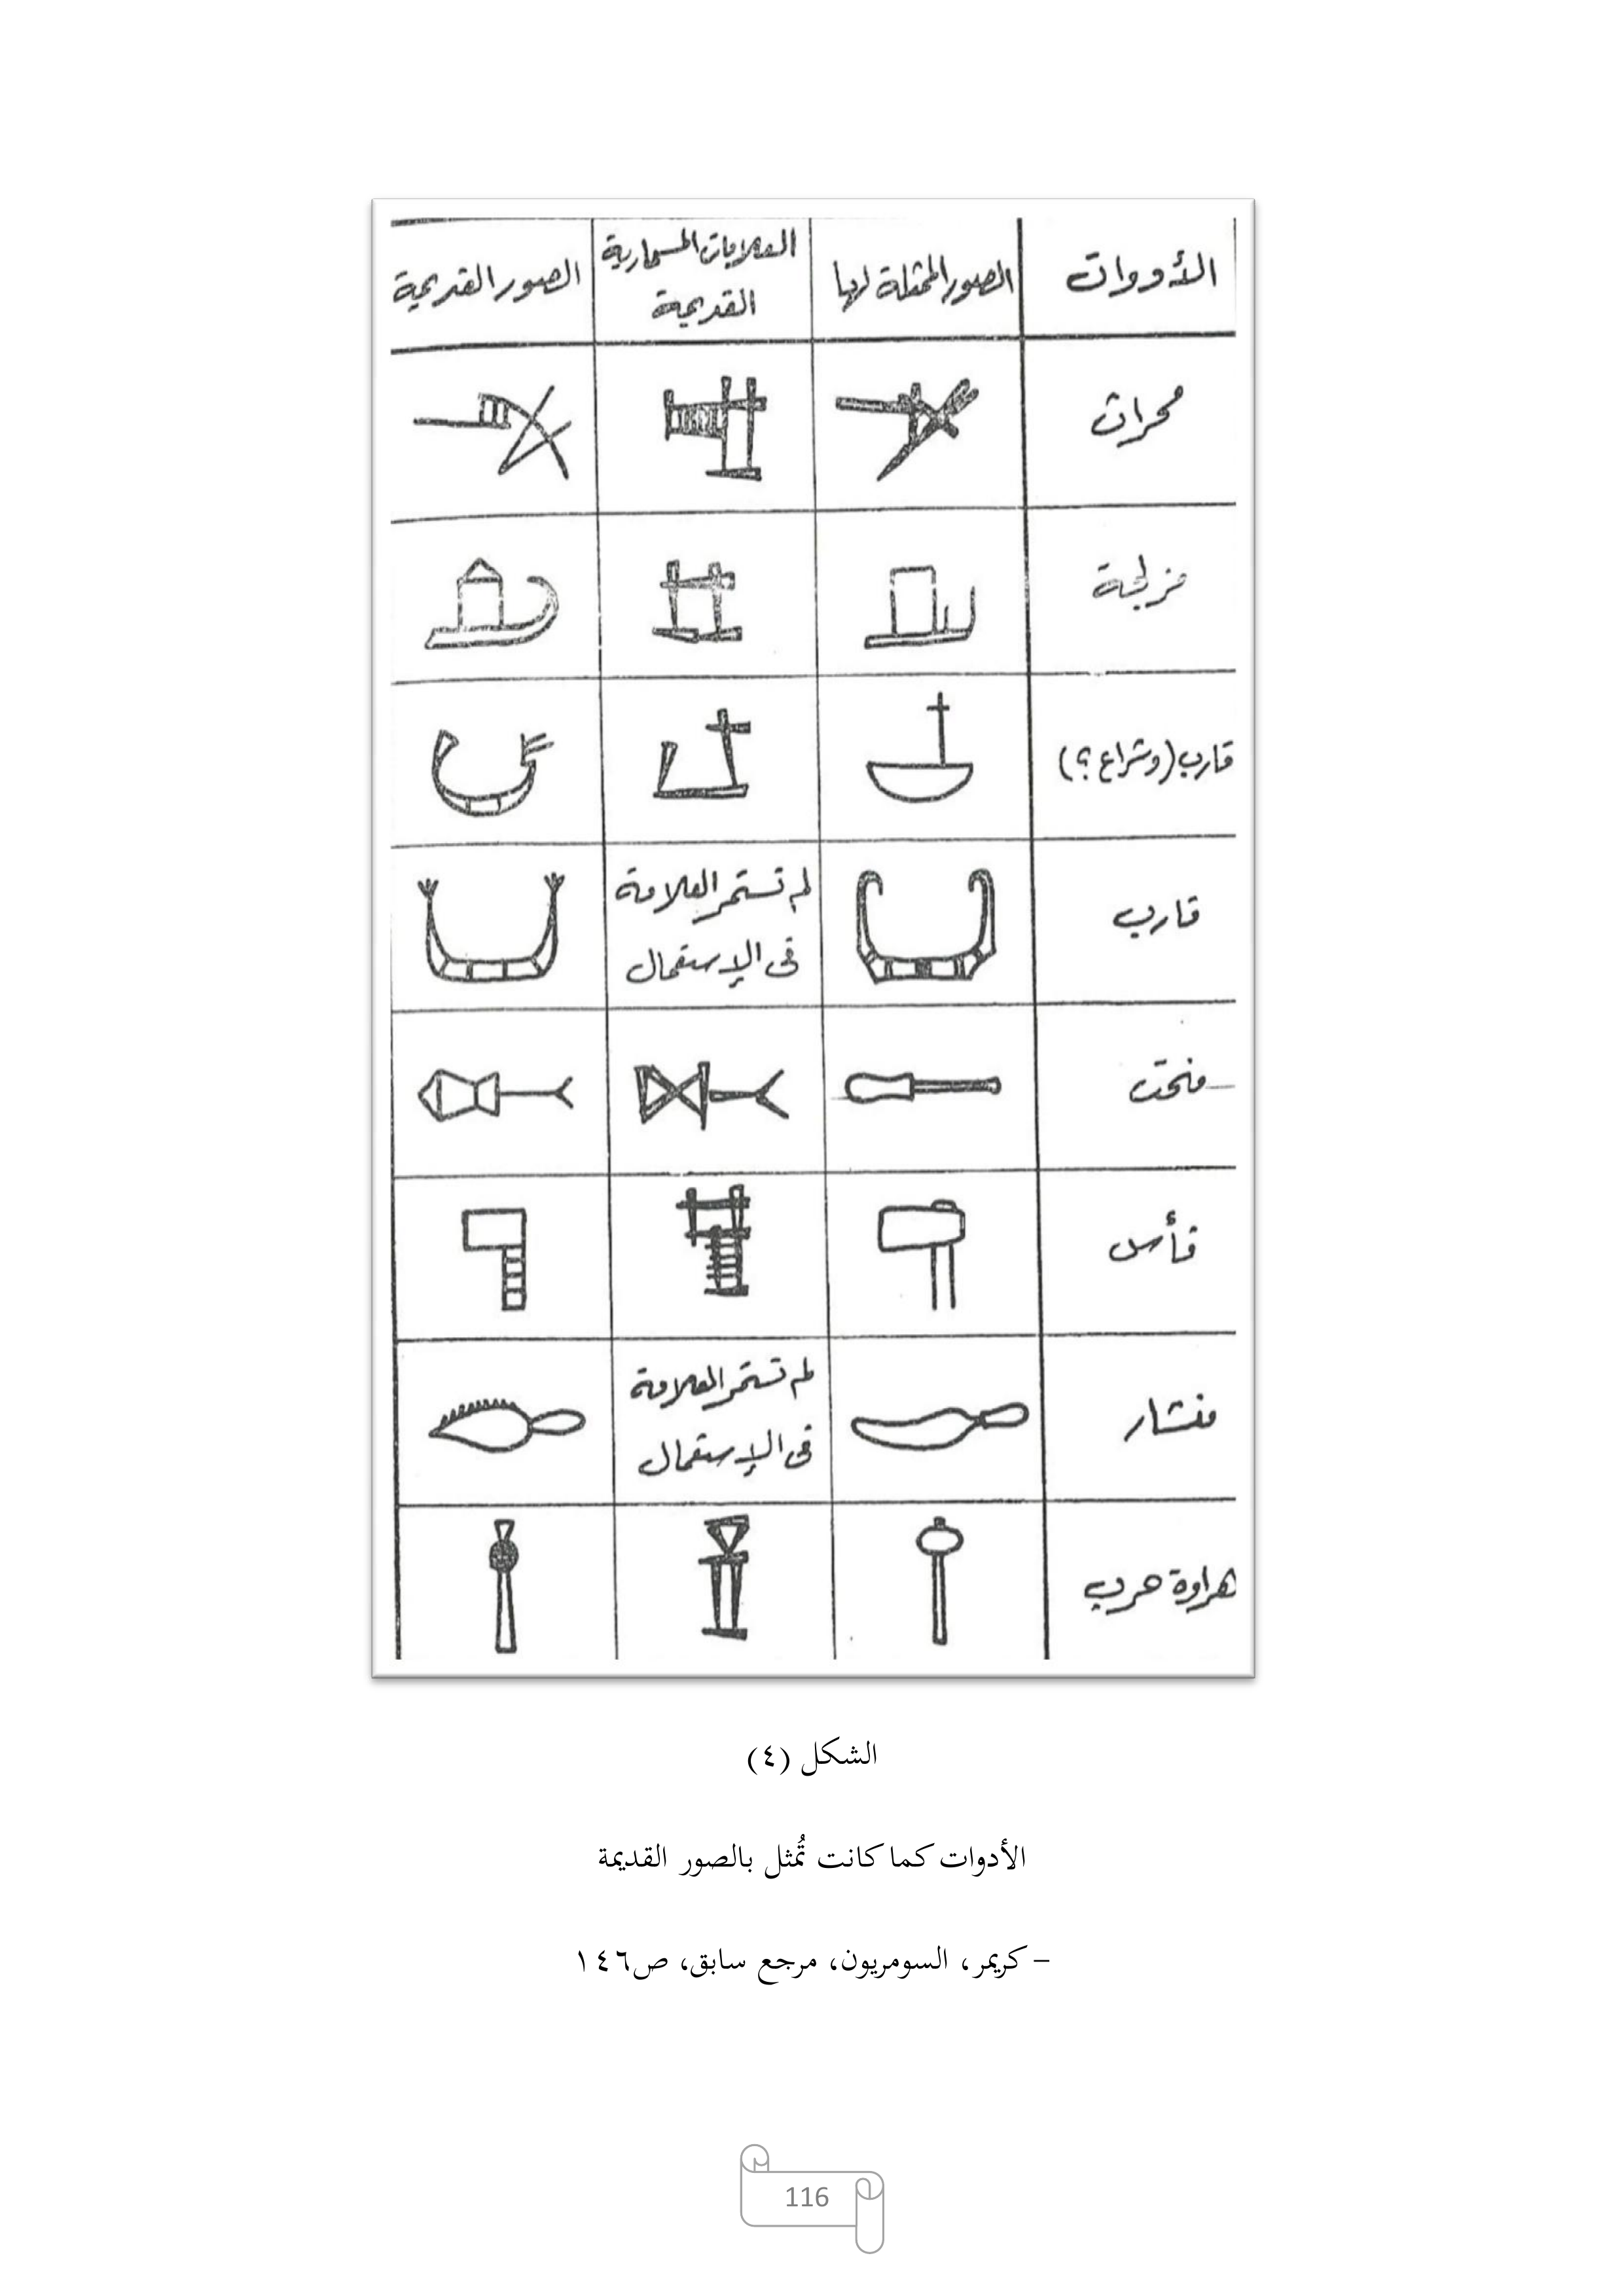 الأدوات
الصور الممثلة لها
العلامات المسمارية
القديمة
الصور القديمة
محراث
مزلجة
قارب (وشراع؟)
قارب
لم تستمر العلامة
فى الإستعمال
منحت
فأس
منشار
لم تستمر العلامة
فى الإستعمال
هراوة حرب
الشكل (٤)
الأدوات كما كانت تُمثل بالصور القديمة
– كريمر، السومريون، مرجع سابق، ص١٤٦
116